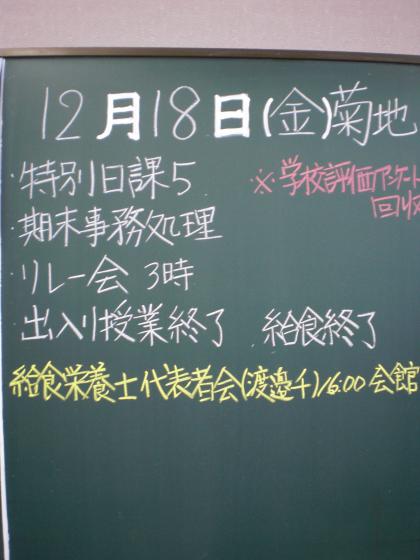 12月18日(金)菊地
・特別日課5
※学校評価アンケート
回収
・期末事務処理
・リレー会 3時
・出入り授業終了 給食終了
給食栄養士代表者会(渡邊千)16:00 会館